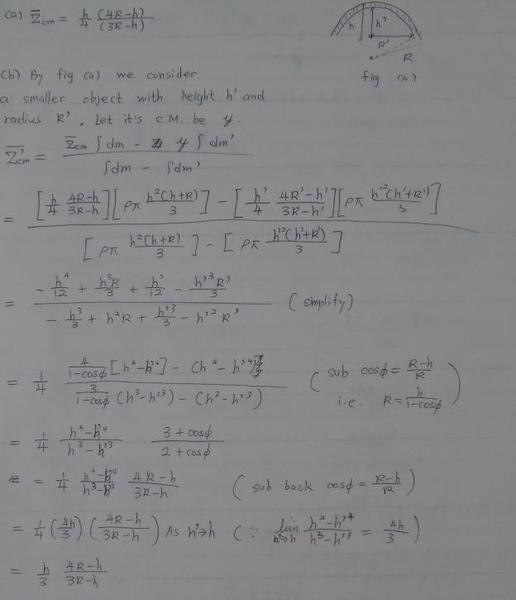 (a) Z̄cm = h/4 (4R-h)/(3R-h)
h h' R' R
fig (a)
(b) By fig (a) we consider
a smaller object with height h' and
radius R'. Let it's C.M. be y.
Z̄'cm = (Z̄cm ∫dm - y ∫dm') / (∫dm - ∫dm')
= ([h/4 (4R-h)/(3R-h)][ρπ h²(h+R)/3] - [h'/4 (4R'-h')/(3R-h')][ρπ h'²(h'+R')/3]) / ([ρπ h²(h+R)/3] - [ρπ h'²(h'+R')/3])
= (-h⁴/12 + h³R/3 + h'/12 - h'³R'/3) / (-h³/3 + h²R + h'³/3 - h'²R') (simplify)
= 1/4 (4/(1-cosφ) [h⁴-h'⁴] - (h⁴-h'⁴)) / (3/(1-cosφ) (h³-h'³) - (h²-h'³)) (sub cosφ = (R-h)/R
i.e. R = h/(1-cosφ))
= 1/4 (h⁴-h'⁴)/(h³-h'³) (3+cosφ)/(2+cosφ)
= 1/4 (h⁴-h'⁴)/(h³-h'³) (4R-h)/(3R-h) (sub back cosφ = (R-h)/R)
= 1/4 (4h/3) ((4R-h)/(3R-h)) As h'→h (∵ lim h'→h (h⁴-h'⁴)/(h³-h'³) = 4h/3)
= h/3 (4R-h)/(3R-h)